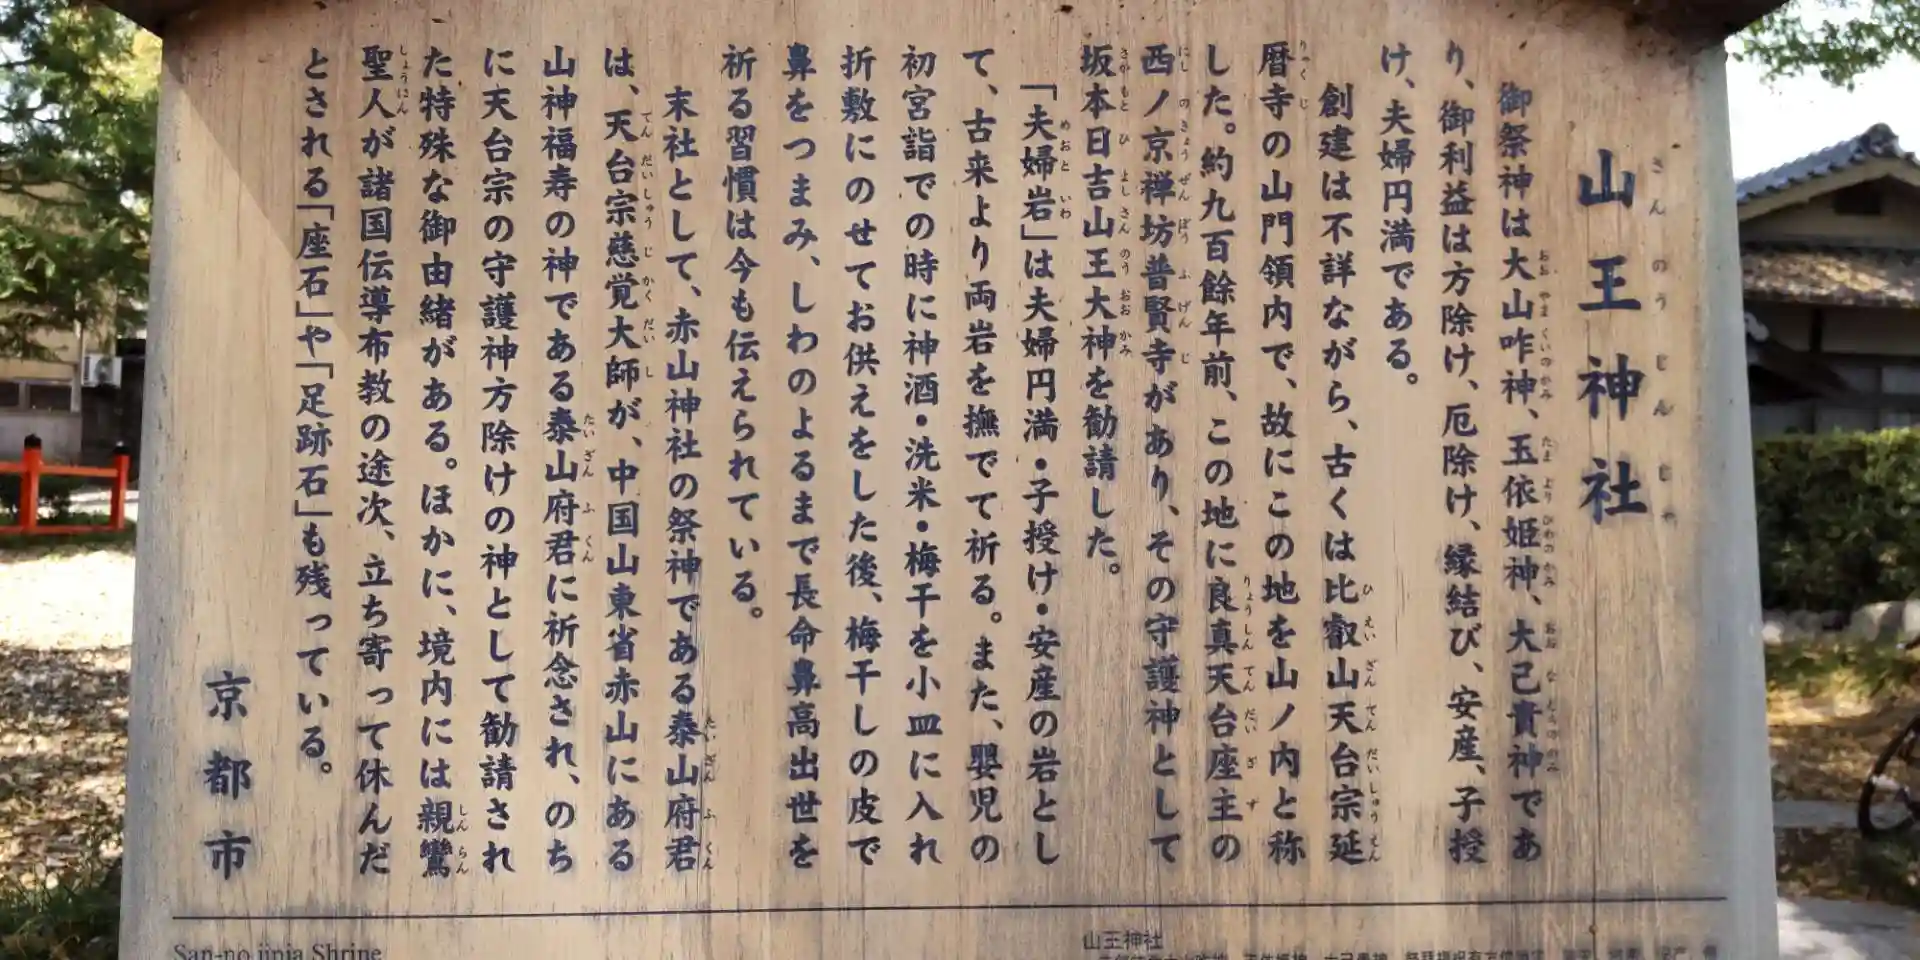 山王神社
御祭神は大山咋神、玉依姫神、大己貴神であ
り、御利益は方除け、厄除け、縁結び、安産、子授
け、夫婦円満である。
創建は不詳ながら、古くは比叡山天台宗延
暦寺の山門領内で、故にこの地を山ノ内と称
した。約九百餘年前、この地に良真天台座主の
西ノ京禅坊普賢寺があり、その守護神として
坂本日吉山王大神を勧請した。
「夫婦岩」は夫婦円満・子授け・安産の岩とし
て、古来より両岩を撫でて祈る。また、嬰児の
初宮詣での時に神酒・洗米・梅干を小皿に入れ
折敷にのせてお供えをした後、梅干しの皮で
鼻をつまみ、しわのよるまで長命鼻高出世を
祈る習慣は今も伝えられている。
末社として、赤山神社の祭神である泰山府君
は、天台宗慈覚大師が、中国山東省赤山にある
山神福寿の神である泰山府君に祈念され、のち
に天台宗の守護神方除けの神として勧請され
た特殊な御由緒がある。ほかに、境内には親鸞
聖人が諸国伝導布教の途次、立ち寄って休んだ
とされる「座石」や「足跡石」も残っている。
京都市
San-no jinja Shrine
山王神社